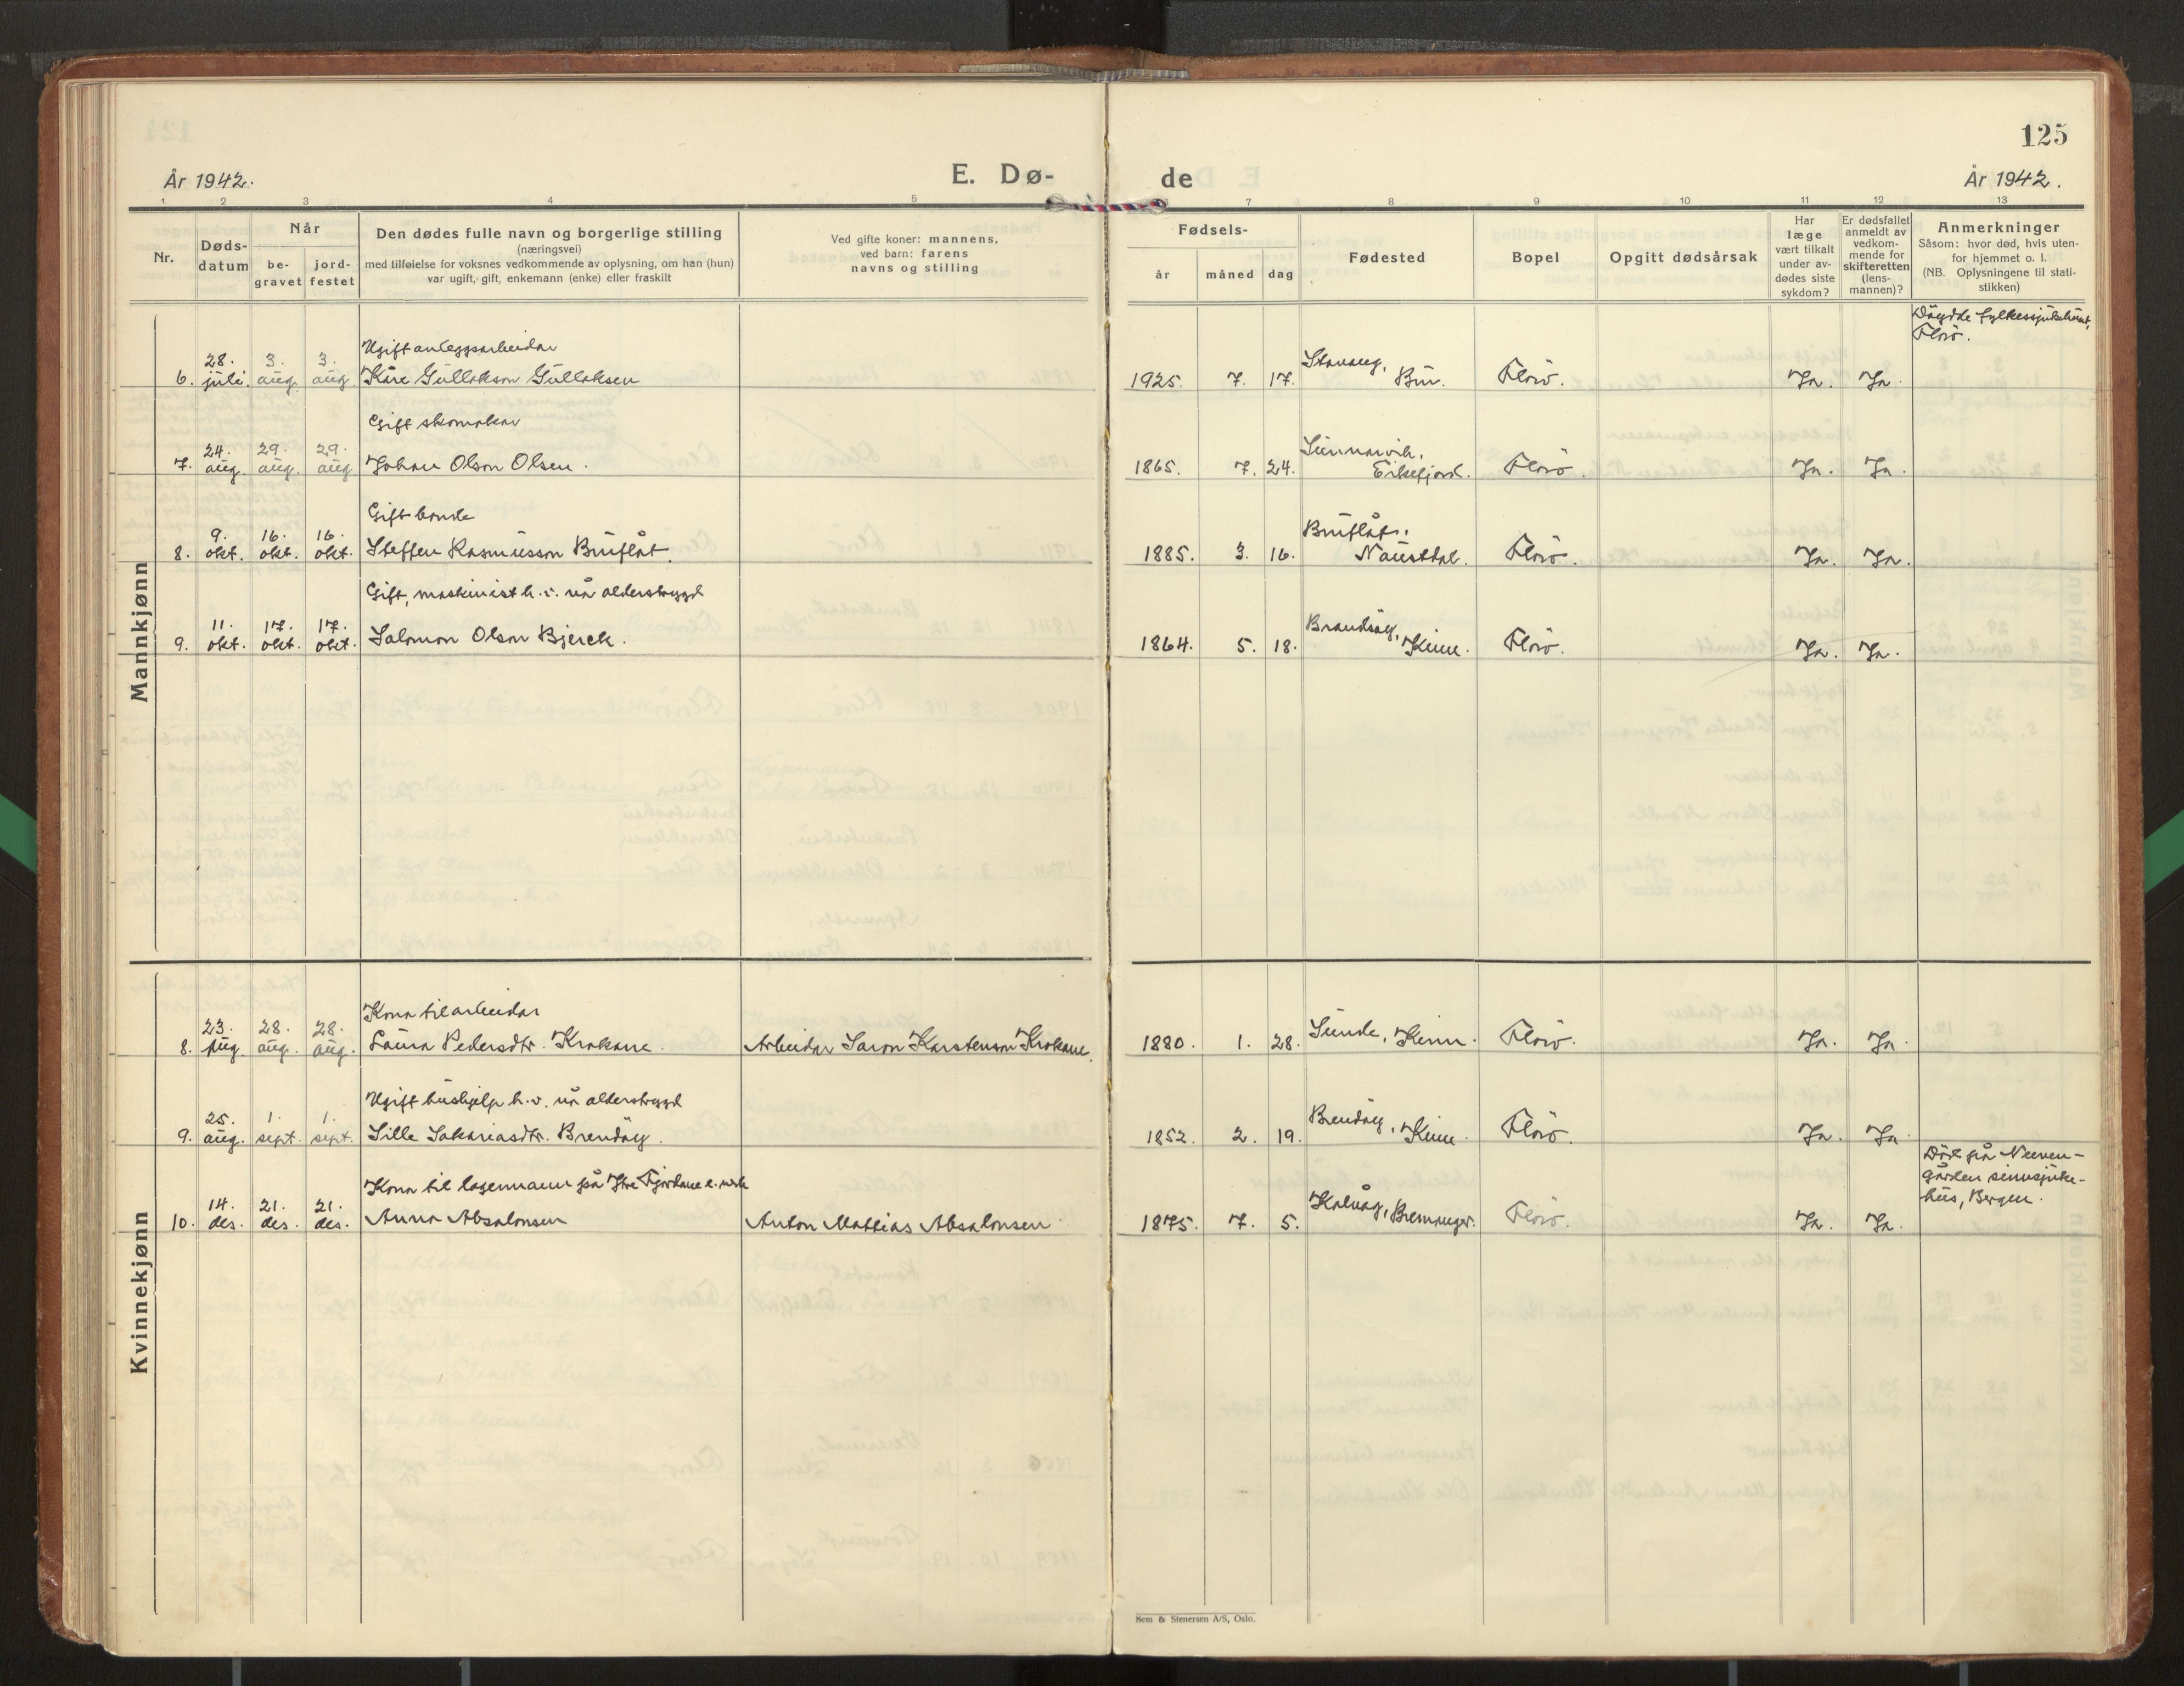 125
År 1942.
E. Dø-
de
År 1942.
1 2 3 4 5 6 7 8 9 10 11 12 13
Nr.
Døds-
datum
Når
be-
gravet
jord-
festet
Den dødes fulle navn og borgerlige stilling
(næringsvei)
med tilføielse for voksnes vedkommende av oplysning, om han (hun)
var ugift, gift, enkemann (enke) eller fraskilt
Ved gifte koner: mannens,
ved barn: farens
navns og stilling
Fødsels-
år
måned
dag
Fødested
Bopel
Opgitt dødsårsak
Har
læge
vært tilkalt
under av-
dødes siste
sykdom?
Er dødsfallet
anmeldt av
vedkom-
mende for
skifteretten
(lens-
mannen)?
Anmerkninger
Såsom: hvor død, hvis uten-
for hjemmet o. l.
(NB. Oplysningene til stati-
stikken)
Mannkjønn
Døydde fylkessjukehuset,
Florø.
Ugift anleggsarbeidar
28. 3. 3.
Stavang,
6. juli. aug. aug. Kåre Gullakson Gullaksen 1925. 7. 17. Bru. Florø. Ja. Ja.
Gift skomakar
24. 29. 29.
Sunnarvik,
7. aug. aug. aug. Johan Olson Olsen. 1865. 7. 24. Eikefjord. Florø. Ja. Ja.
Gift bonde
9. 16. 16.
Bruflåt,
8. okt. okt. okt. Steffen Rasmusson Bruflåt. 1885. 3. 16. Naustdal. Florø. Ja. Ja.
Gift, maskinist h.v. nå alderstrygd
11. 17. 17.
9. okt. okt. okt. Salomon Olson Bjerck. 1864. 5. 18. Brandsøy, Kinn. Florø. Ja. Ja.
Kvinnekjønn
Kona til arbeidar
23. 28. 28.
8. aug. aug. aug. Laura Pedersdtr. Krokane. Arbeidar Saron Karstenson Krokane. 1880. 1. 28. Sunde, Kinn. Florø. Ja. Ja.
Ugift hushjelp h.v. nå alderstrygd
25. 1. 1.
9. aug. sept. sept. Sille Sakariasdtr. Brendøy. 1852. 2. 19. Brendøy, Kinn. Florø. Ja. Ja.
Død på Neeven-
gården sinnsjuke-
hus, Bergen.
Kona til lagermann på Ytre Fjordane e. verk
14. 21. 21.
10. des. des. des. Anna Absalonsen Anton Mattias Absalonsen 1875. 7. 5. Kalvåg, Bremanger. Florø. Ja. Ja.
Sem & Stenersen A/S, Oslo.